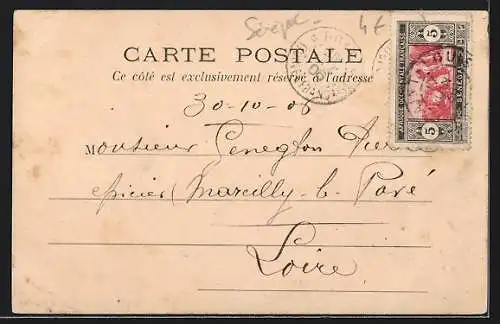 Sénégal 4€
CARTE POSTALE
Ce côté est exclusivement réservé à l'adresse
AFRIQUE OCCIDENTALE FRANÇAISE
SÉNÉGAL
5 5
30-10-06
Monsieur
épicier Marcilly-le Pavé
Loire